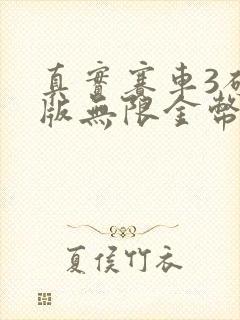 真實賽車3破
版無限金幣
夏侯竹衣